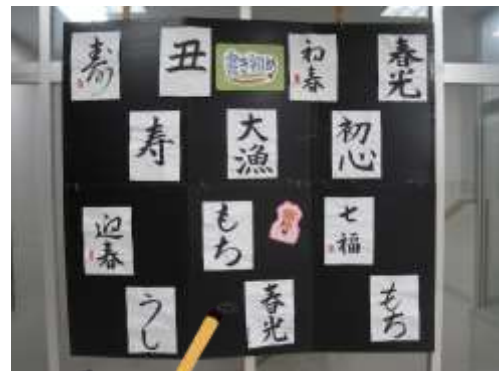 寿
丑
書き初め
初春
春光
寿
大漁
初心
迎春
もち
七福
うし
春光
もち